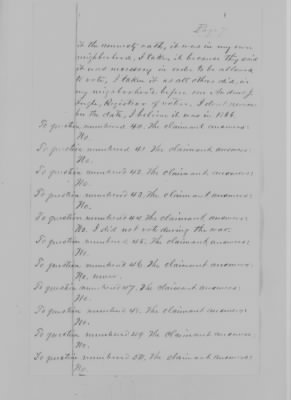 Page 7
it the amnesty oath, it was in my own
neighborhood, I taken it because they said
it was necessary in order to be allowed
to vote, I taken it as all others did, in
my neighborhood before one Andrew J.
Registrar of voters. I dont remem-
ber the date, I believe it was in 1866.
To question numbered 40. The claimant answers:
No.
To question numbered 41. The claimant answers:
No.
To question numbered 42. The claimant answers:
No.
To question numbered 43. The claimant answers:
No.
To question numbered 44. The claimant answers:
No. I did not vote during the war.
To question numbered 45. The claimant answers:
No.
To question numbered 46. The claimant answers:
No, never.
To question numbered 47. The claimant answers:
No.
To question numbered 48. The claimant answers:
No.
To question numbered 49. The claimant answers:
No.
To question numbered 50. The claimant answers:
No.